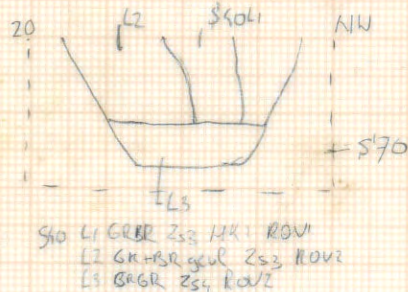 20 L2 S40L1 NW
S70
L3
S40 L1 GRBR Zs3 HK1 ROV1
L2 GR+BR gevl Zs3 ROV2
L3 BRGR Zs4 ROV2